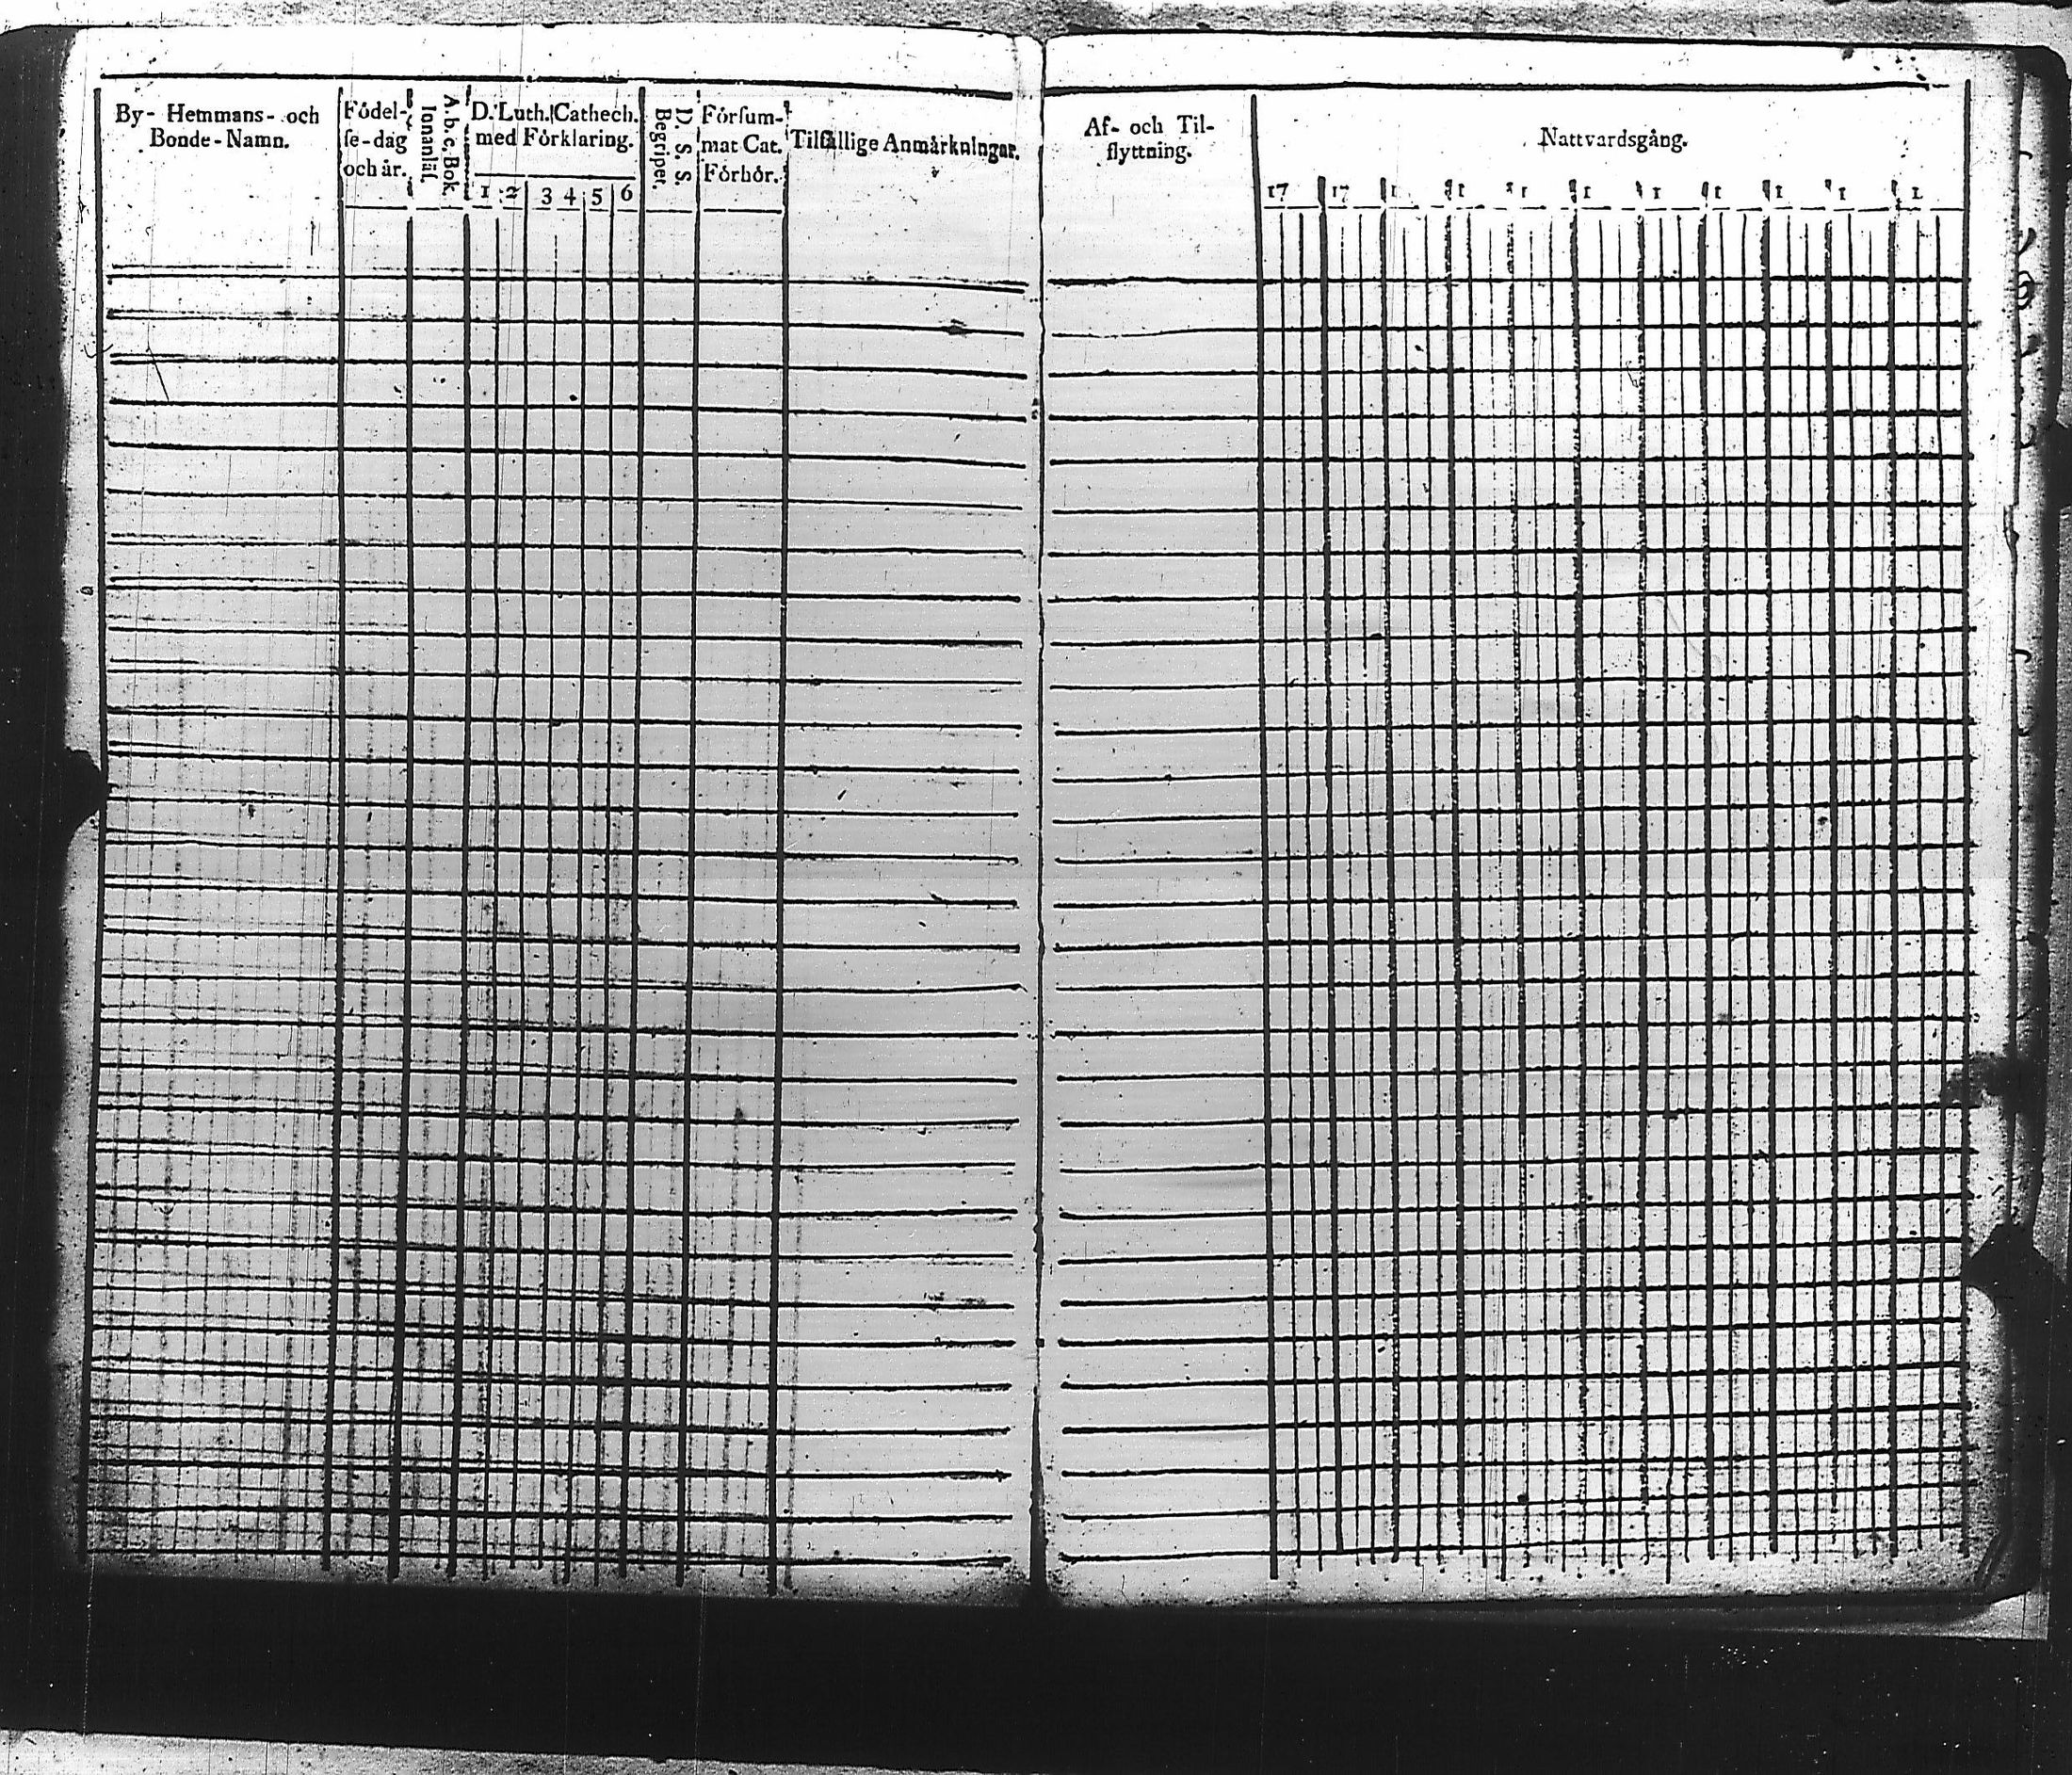 By- Hemmans- och
Bonde-Namn.
Födel-
se-dag
och år.
A.b.c. Bok.
Innanläs.
D. Luth. Cathech.
med Förklaring.
1 2 3 4 5 6
D. S. S.
Begripet.
Försum-
mat Cat.
Förhör.
Tilfällige Anmärkningar.
Af- och Til-
flyttning.
Nattvardsgång.
17 17 1 1 1 1 1 1 1 1 1